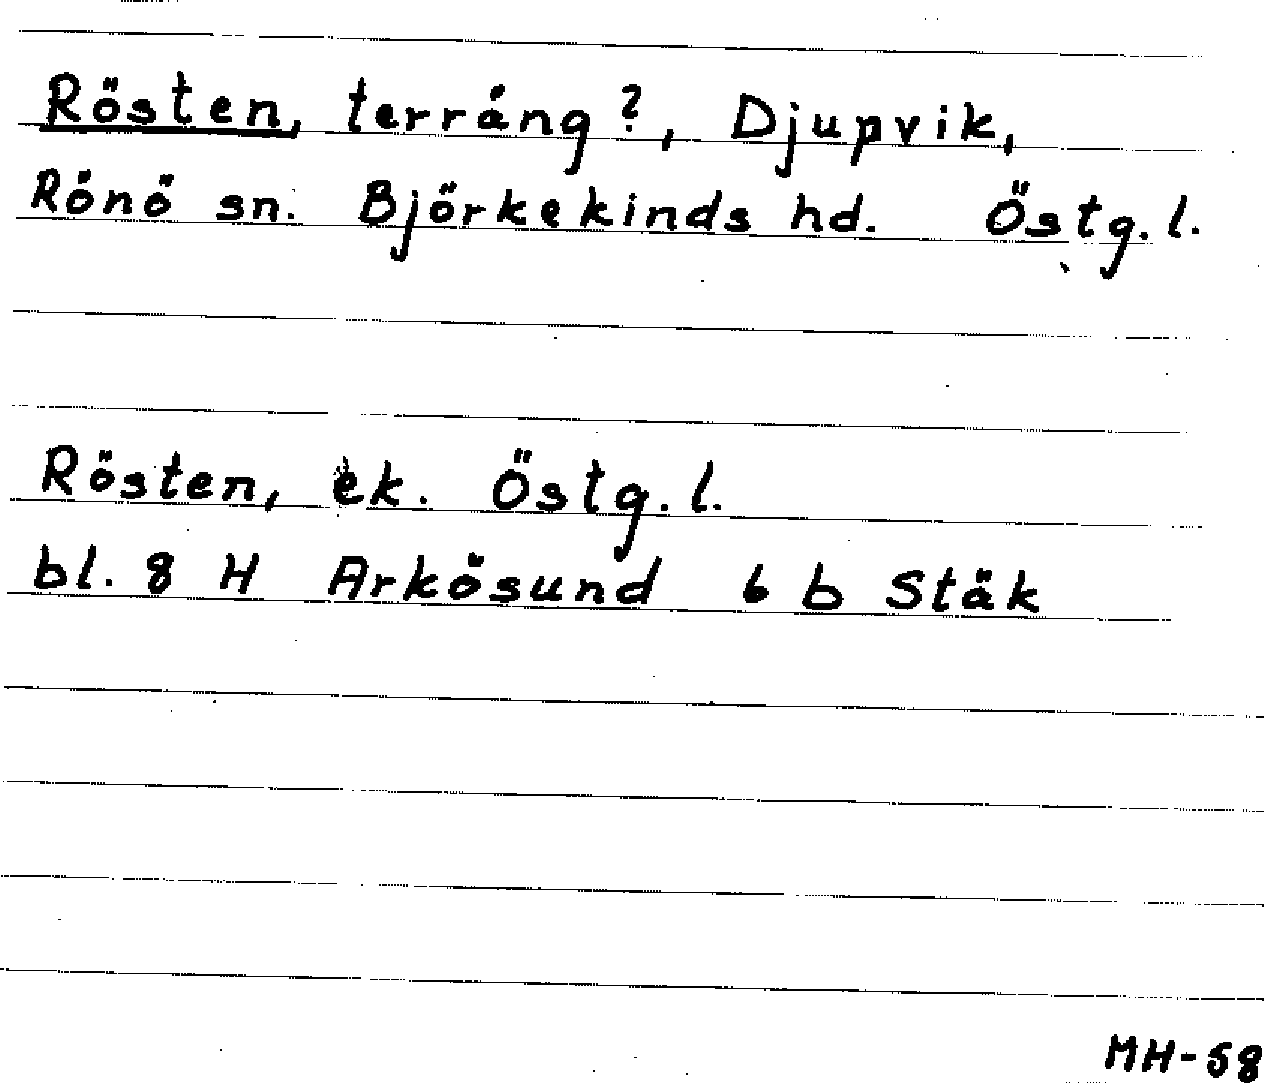 Rösten, terräng?, Djupvik,
Rönö sn. Björkekinds hd. Östg. l.
Rösten, ek. Östg. l.
bl. 8 H Arkösund 6 b Stäk
MH-58